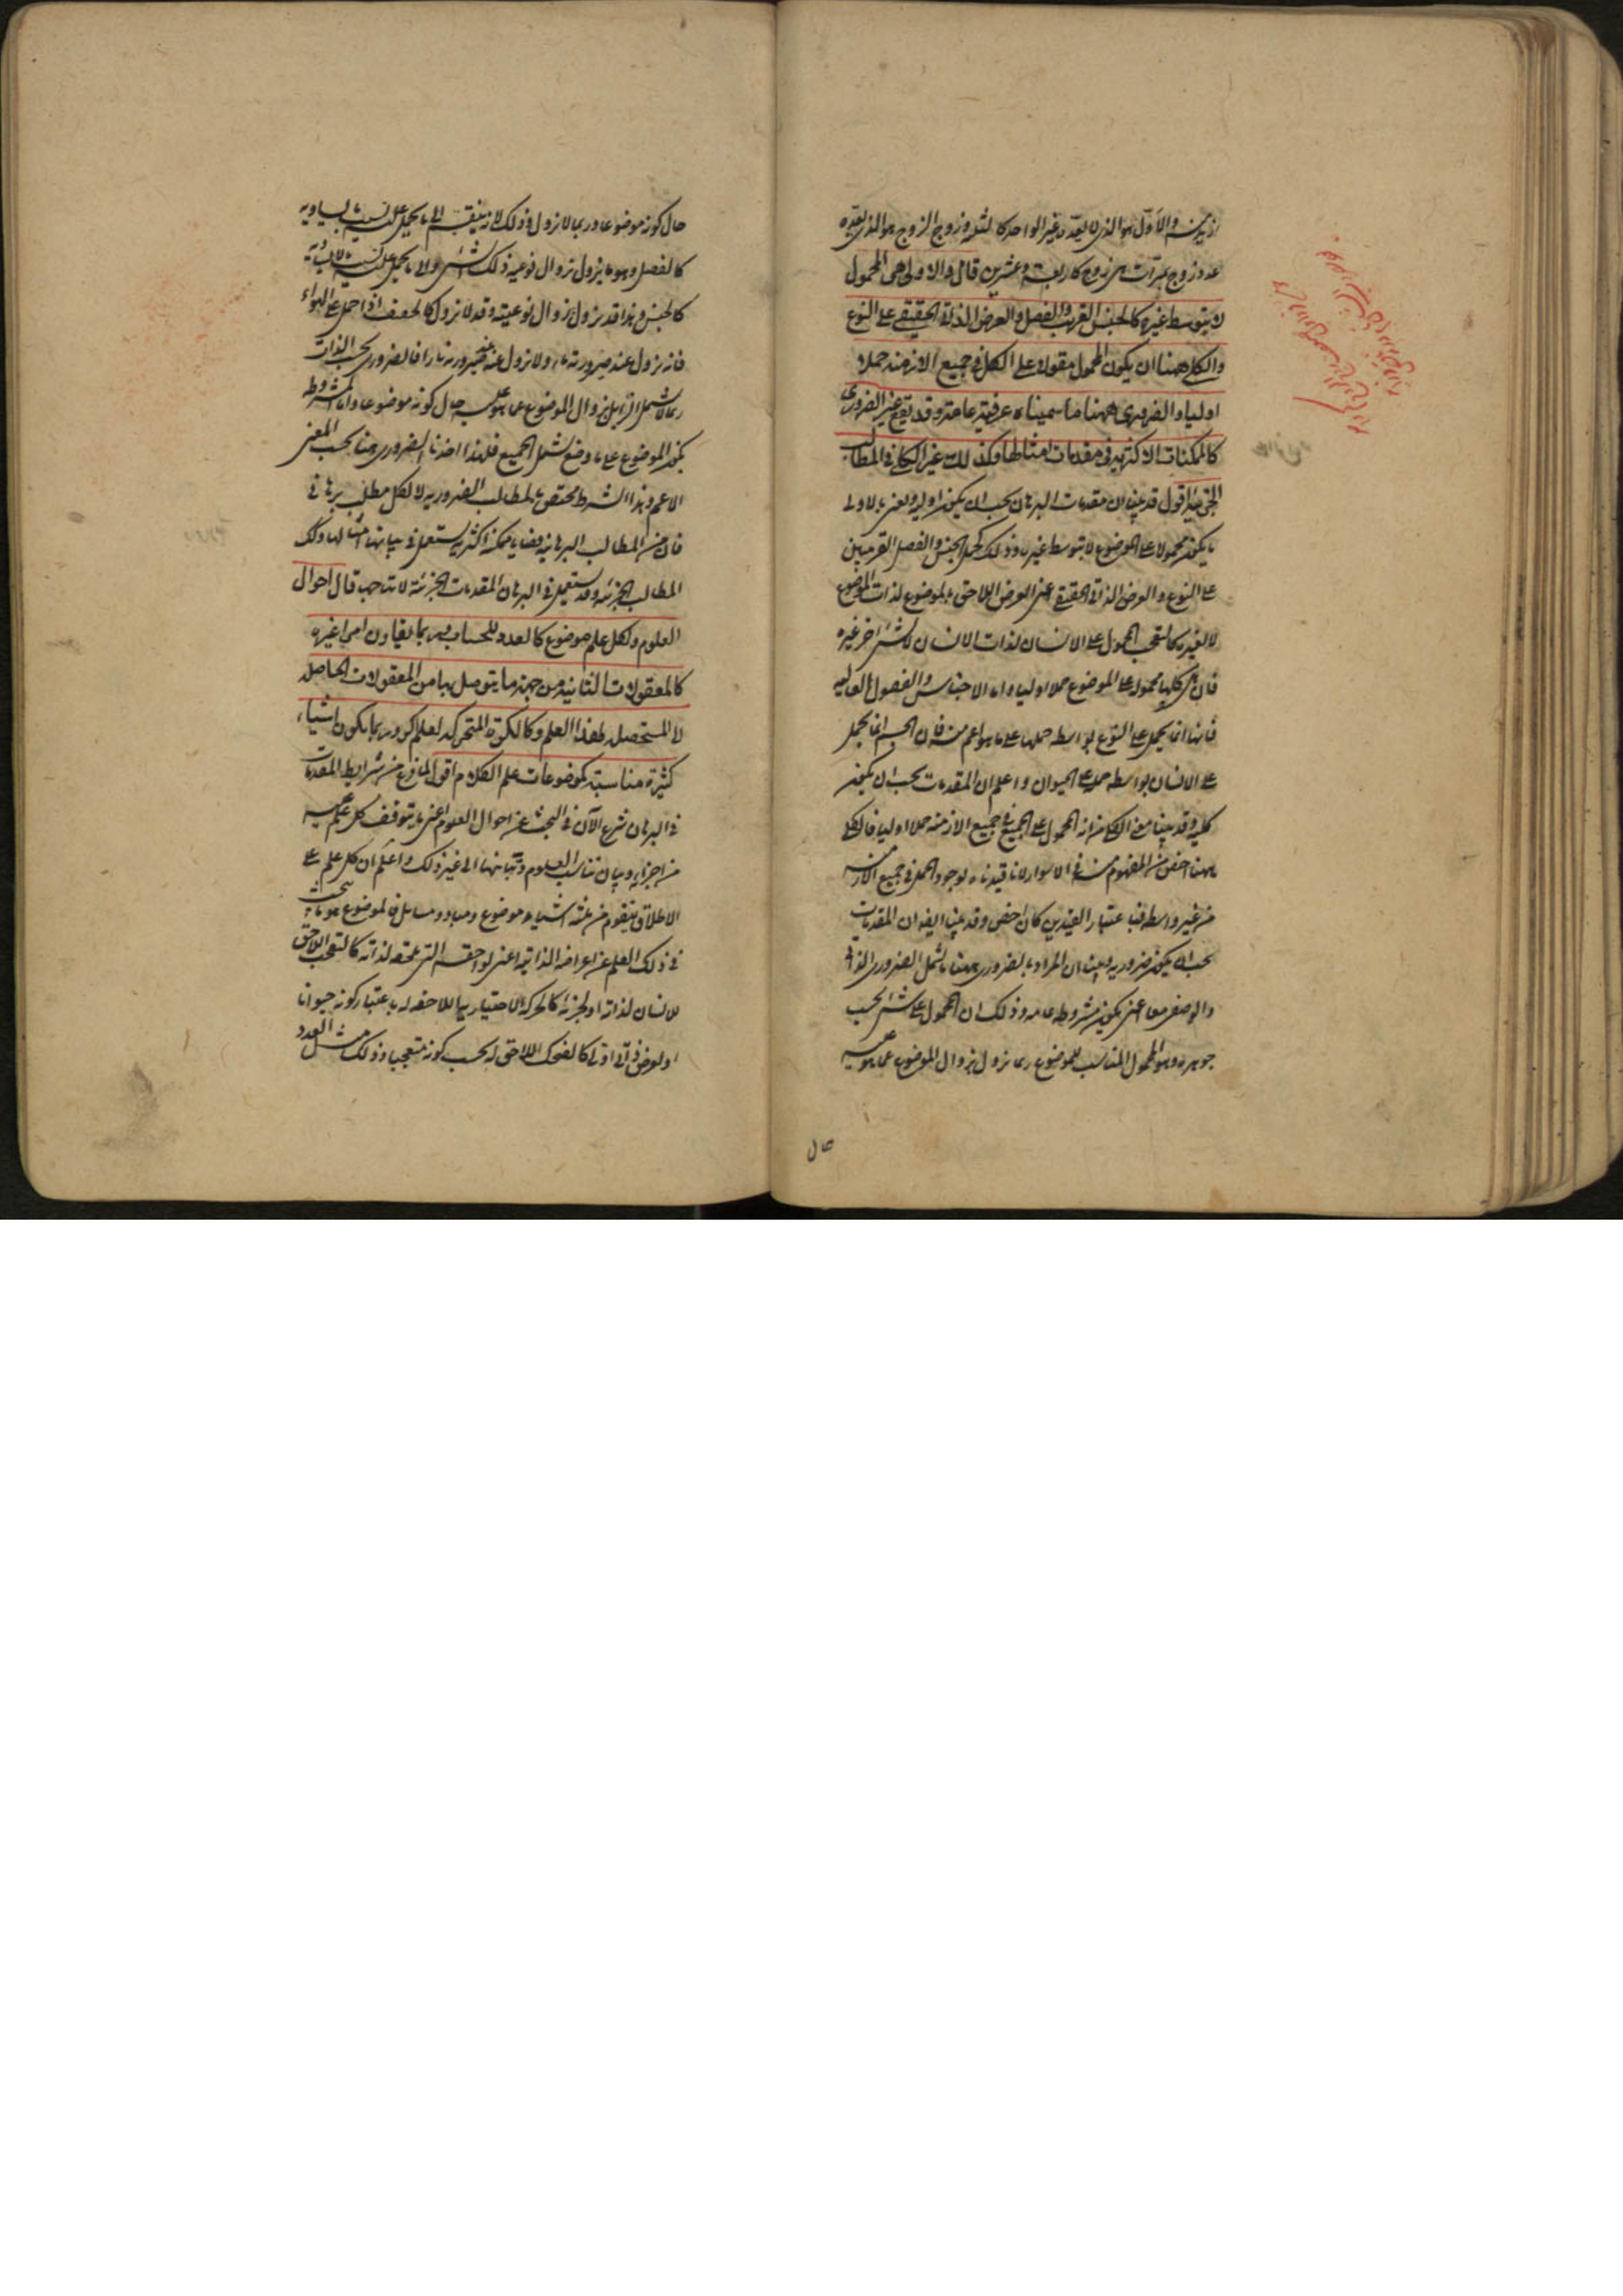 والاول هو الذي لا يعده غير الواحد كالثلثة وزوج الزوج هو الذي يعده
عدد زوج مرات هي زوج كاربعة وعشرين قال والاولى هي المحمول
لا بتوسط غيره كالجنس القريب والفصل والعرض الذاتي الحقيقي على النوع
والكلي ههنا ان يكون المحمول مقولا على الكل في جميع الازمنة حملا
اوليا والضروري ههنا ما سميناه عرفية عامة وقد يقع غير الضروري
كالممكنات الاكثرية في مقدمات امثالها وكذلك غير الكلي في المطالب
الجزئية اقول قد بينا ان مقدمات البرهان يجب ان يكون اولية ونعني بالاولى
ما يكون محمولا على الموضوع لا بتوسط غيره وذلك كحمل الجنس والفصل القريبين
على النوع والعرض الذاتي الحقيقي اعني العرض اللاحق بالموضوع لذات الموضوع
لا لغيره كالتعجب المحمول على الانسان لذات الانسان لا لشئ اخر غيره
فان هذه كلها محمولة على الموضوع حملا اوليا واما الاجناس والفصول العالية
فانها انما يحمل على النوع بواسطة حملها على ما هو اعم منه فان الجسم انما يحمل
على الانسان بواسطة حمله على الحيوان واعلم ان المقدمات يجب ان يكون
كلية وقد بينا معنى الكلي من انه المحمول على الجميع في جميع الازمنة حملا اوليا فالكلي
ههنا اخص من المفهوم منه في الاسوار لانا قيدناه بوجود الحمل في جميع الازمنة
من غير واسطة فباعتبار القيدين كان اخص وقد بينا ايضا ان المقدمات
يجب ان يكون ضرورية وبينا ان المراد بالضروري ههنا ما يشمل الضروري الذاتي
والوصفي معا اعني يكون مشروطة عامة وذلك ان المحمول على شئ بحسب
جوهره وهو المحمول المناسب للموضوع ربما يزول بزوال الموضوع عما هو عليه
حال
حال كونه موضوعا وربما لا يزول وذلك لانه ينقسم الى ما يحمل عليه بسبب ما يساويه
كالفصل وهو ما يزول بزوال نوعية ذلك الشئ والى ما يحمل عليه بسبب
كالجنس وهذا قد يزول بزوال نوعيته وقد لا يزول كالخفيف اذا حمل على الهواء
فانه يزول عند صيرورته ماء ولا يزول عنه عند صيرورته نارا فالضروري بحسب الذات
ربما لا يشمل الزايل بزوال الموضوع عما هو عليه حال كونه موضوعا واما المشروط
بكون الموضوع على ما وضع يشمل الجميع فلهذا اخذنا الضروري هنا بحسب المعنى
الاعم وهذا الشرط مختص بالمطالب الضرورية لا لكل مطلب برهاني
فان من المطالب البرهانية قضايا ممكنة اكثرية يستعمل في بيانها امثالها وكذلك
المطالب الجزئية وقد يستعمل في البرهان المقدمات الجزئية لانتاجها قال احوال
العلوم ولكل علم موضوع كالعدد للحساب وربما يقارن امرا غيره
كالمعقولات الثانية من جهة ما يتوصل بها من المعقولات الحاصلة
لا المستحصلة لهذا العلم وكالكرة المتحركة لعلم الاكر وربما يكون اشياء
كثيرة مناسبة كموضوعات علم الكلام اقول لما فرغ من شرايط المقدمات
في البرهان شرع الآن في البحث عن احوال العلوم اعني ما يتوقف كل علم عليه
من اجزايه وبيان تناسب العلوم وتباينها الى غير ذلك واعلم ان كل علم على
الاطلاق يتقوم من ثلثة اشياء موضوع ومباد ومسايل فالموضوع هو ما يبحث
في ذلك العلم عن اعراضه الذاتية اعني لواحقه التي تلحقه لذاته كالتعجب اللاحق
للانسان لذاته او لجزئه كالحركة الاختيارية اللاحقة له باعتبار كونه حيوانا
او لعرض ذاتي اولي كالضحك اللاحق له بحسب كونه متعجبا وذلك مثل العدد